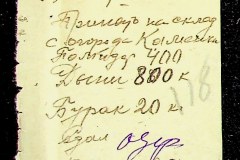 Принять на склад
с огорода Каменка
Помидор 400
Дыни 800 к
Бурак 20 к
178